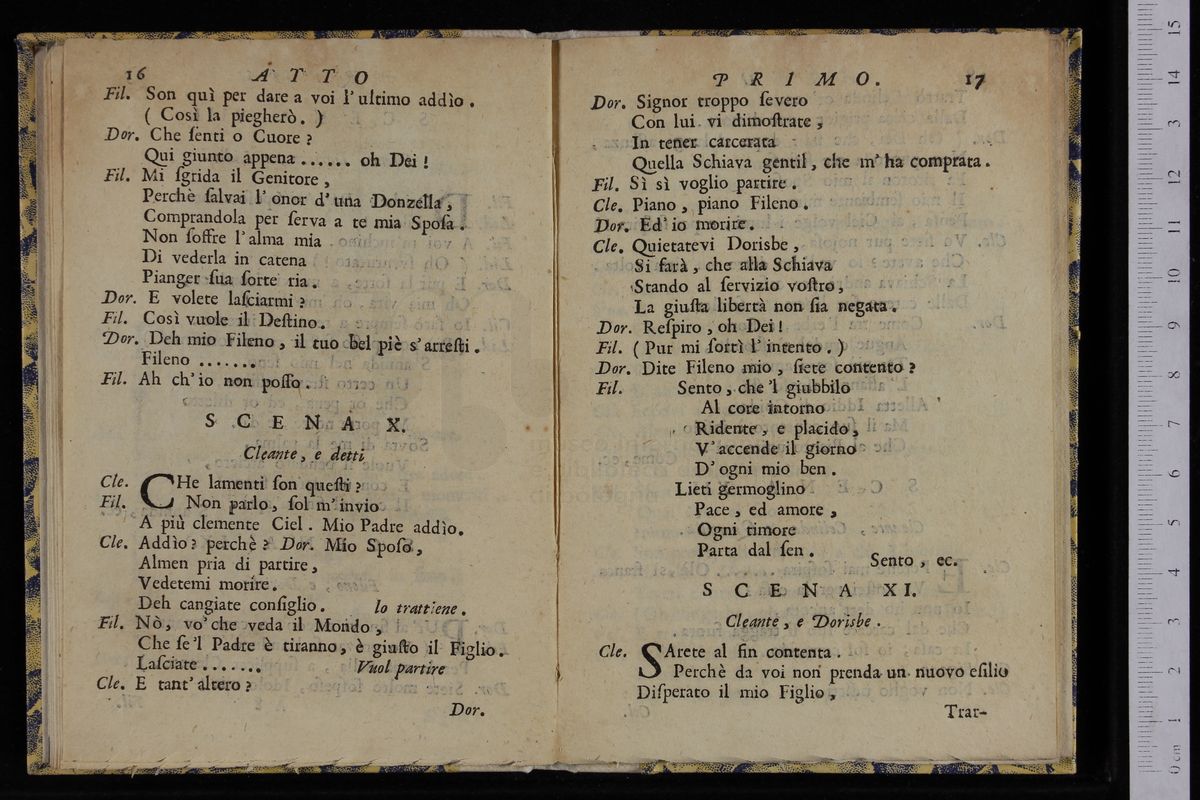 16 ATTO
Fil. Son quì per dare a voi l' ultimo addìo .
( Così la piegherò . )
Dor. Che ſenti o Cuore ?
Qui giunto appena ...... oh Dei !
Fil. Mi ſgrida il Genitore ,
Perchè ſalvai l' onor d' una Donzella ,
Comprandola per ſerva a te mia Spoſa .
Non ſoffre l'alma mia
Di vederla in catena
Pianger ſua ſorte ria .
Dor. E volete laſciarmi ?
Fil. Così vuole il Deſtino .
Dor. Deh mio Fileno , il tuo bel piè s' arreſti .
Fileno .......
Fil. Ah ch' io non poſſo .
SCENA X.
Cleante , e detti
Cle. CHe lamenti ſon queſti ?
Fil. Non parlo , ſol m' invio
A più clemente Ciel . Mio Padre addìo .
Cle. Addìo ? perchè ? Dor. Mio Spoſo ,
Almen pria di partire ,
Vedetemi morire .
Deh cangiate conſiglio . lo trattiene .
Fil. Nò , vo' che veda il Mondo ,
Che ſe 'l Padre è tiranno , è giuſto il Figlio .
Laſciate ....... Vuol partire
Cle. E tant' altero ?
Dor.
PRIMO. 17
Dor. Signor troppo ſevero
Con lui vi dimoſtrate ,
In tener carcerata
Quella Schiava gentil , che m' ha comprata .
Fil. Sì sì voglio partire .
Cle. Piano , piano Fileno .
Dor. Ed' io morire .
Cle. Quietatevi Dorisbe ,
Si farà , che alla Schiava
Stando al ſervizio voſtro ,
La giuſta libertà non ſia negata .
Dor. Reſpiro , oh Dei !
Fil. ( Pur mi ſortì l' intento . )
Dor. Dite Fileno mio , ſiete contento ?
Fil. Sento , che 'l giubbilo
Al core intorno
Ridente , e placido ,
V' accende il giorno
D' ogni mio ben .
Lieti germoglino
Pace , ed amore ,
Ogni timore
Parta dal ſen .
Sento , ec.
SCENA XI.
Cleante , e Dorisbe .
Cle. SArete al fin contenta .
Perchè da voi non prenda un nuovo eſilio
Diſperato il mio Figlio ,
Trar-
0 cm 1 2 3 4 5 6 7 8 9 10 11 12 13 14 15